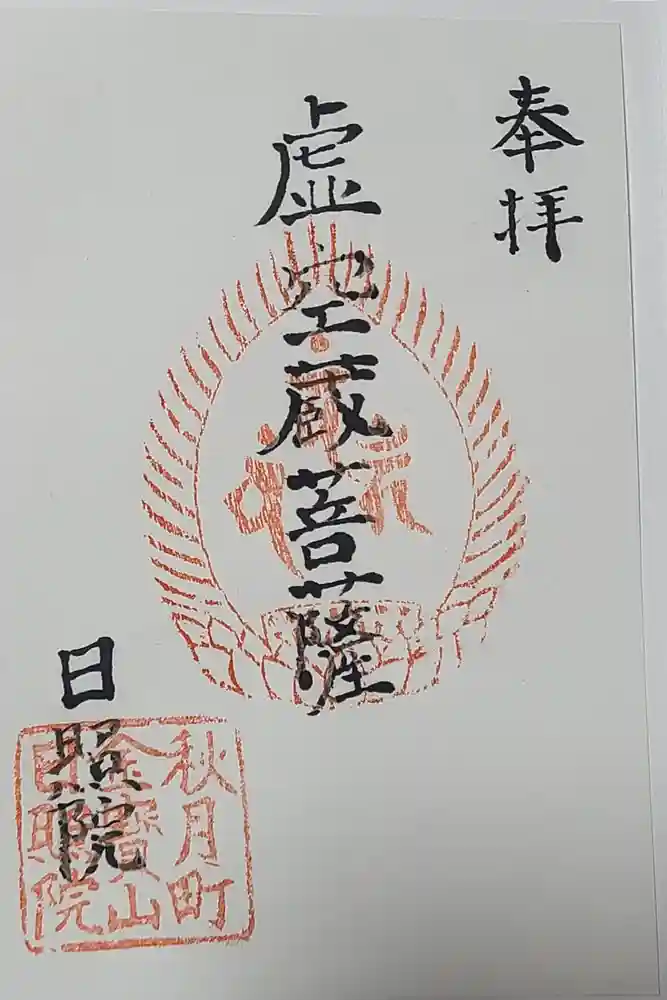 奉拝
虚空蔵菩薩
日照院
秋月町
金寳山
日照院